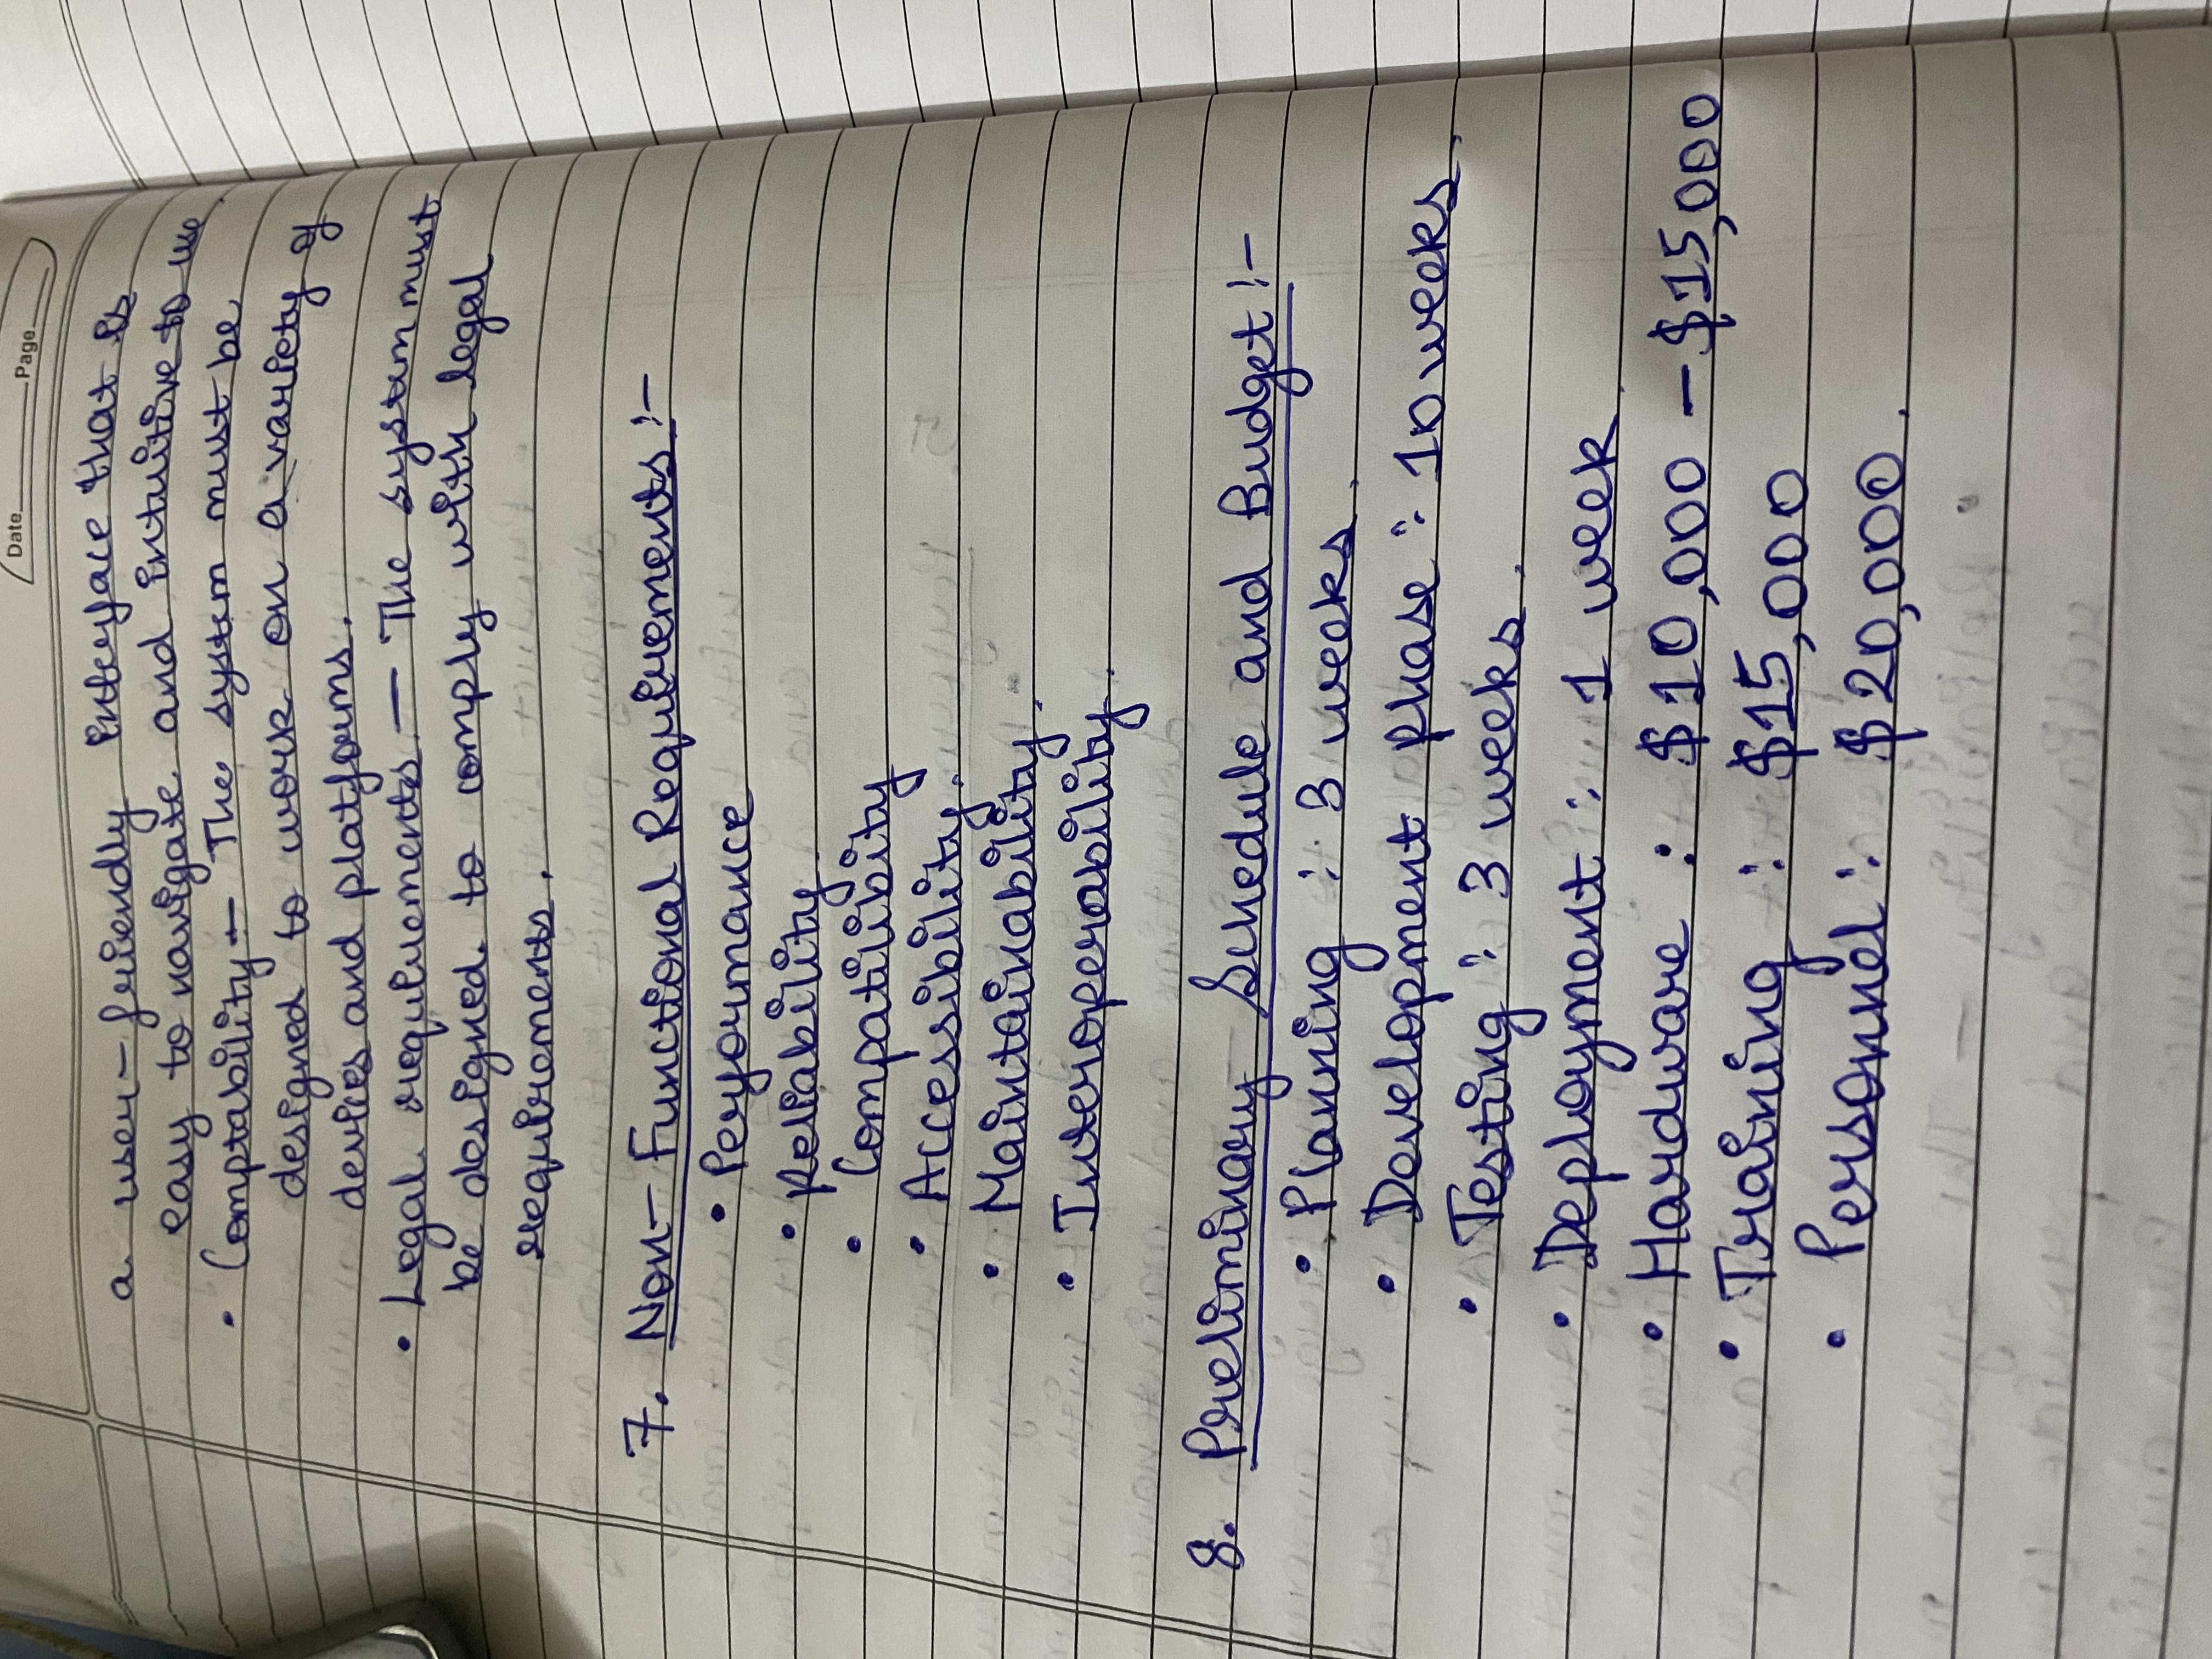 Date Page
a user-friendly interface that is
easy to navigate and intuitive to use.
• Comptability — The system must be
designed to work on a variety of
devices and platforms.
• Legal requirements — The system must
be designed to comply with legal
requirements.
7. Non-Functional Requirements :-
• Performance
• Reliability
• Compatilibity
• Accessibility.
• Maintainability.
• Interoperability.
8. Preliminary Schedule and Budget :-
• Planning : 3 weeks.
• Development phase : 10 weeks.
• Testing : 3 weeks.
• Deployment : 1 week.
• Hardware : $10,000 - $15,000
• Training : $15,000
• Personnel : $20,000.